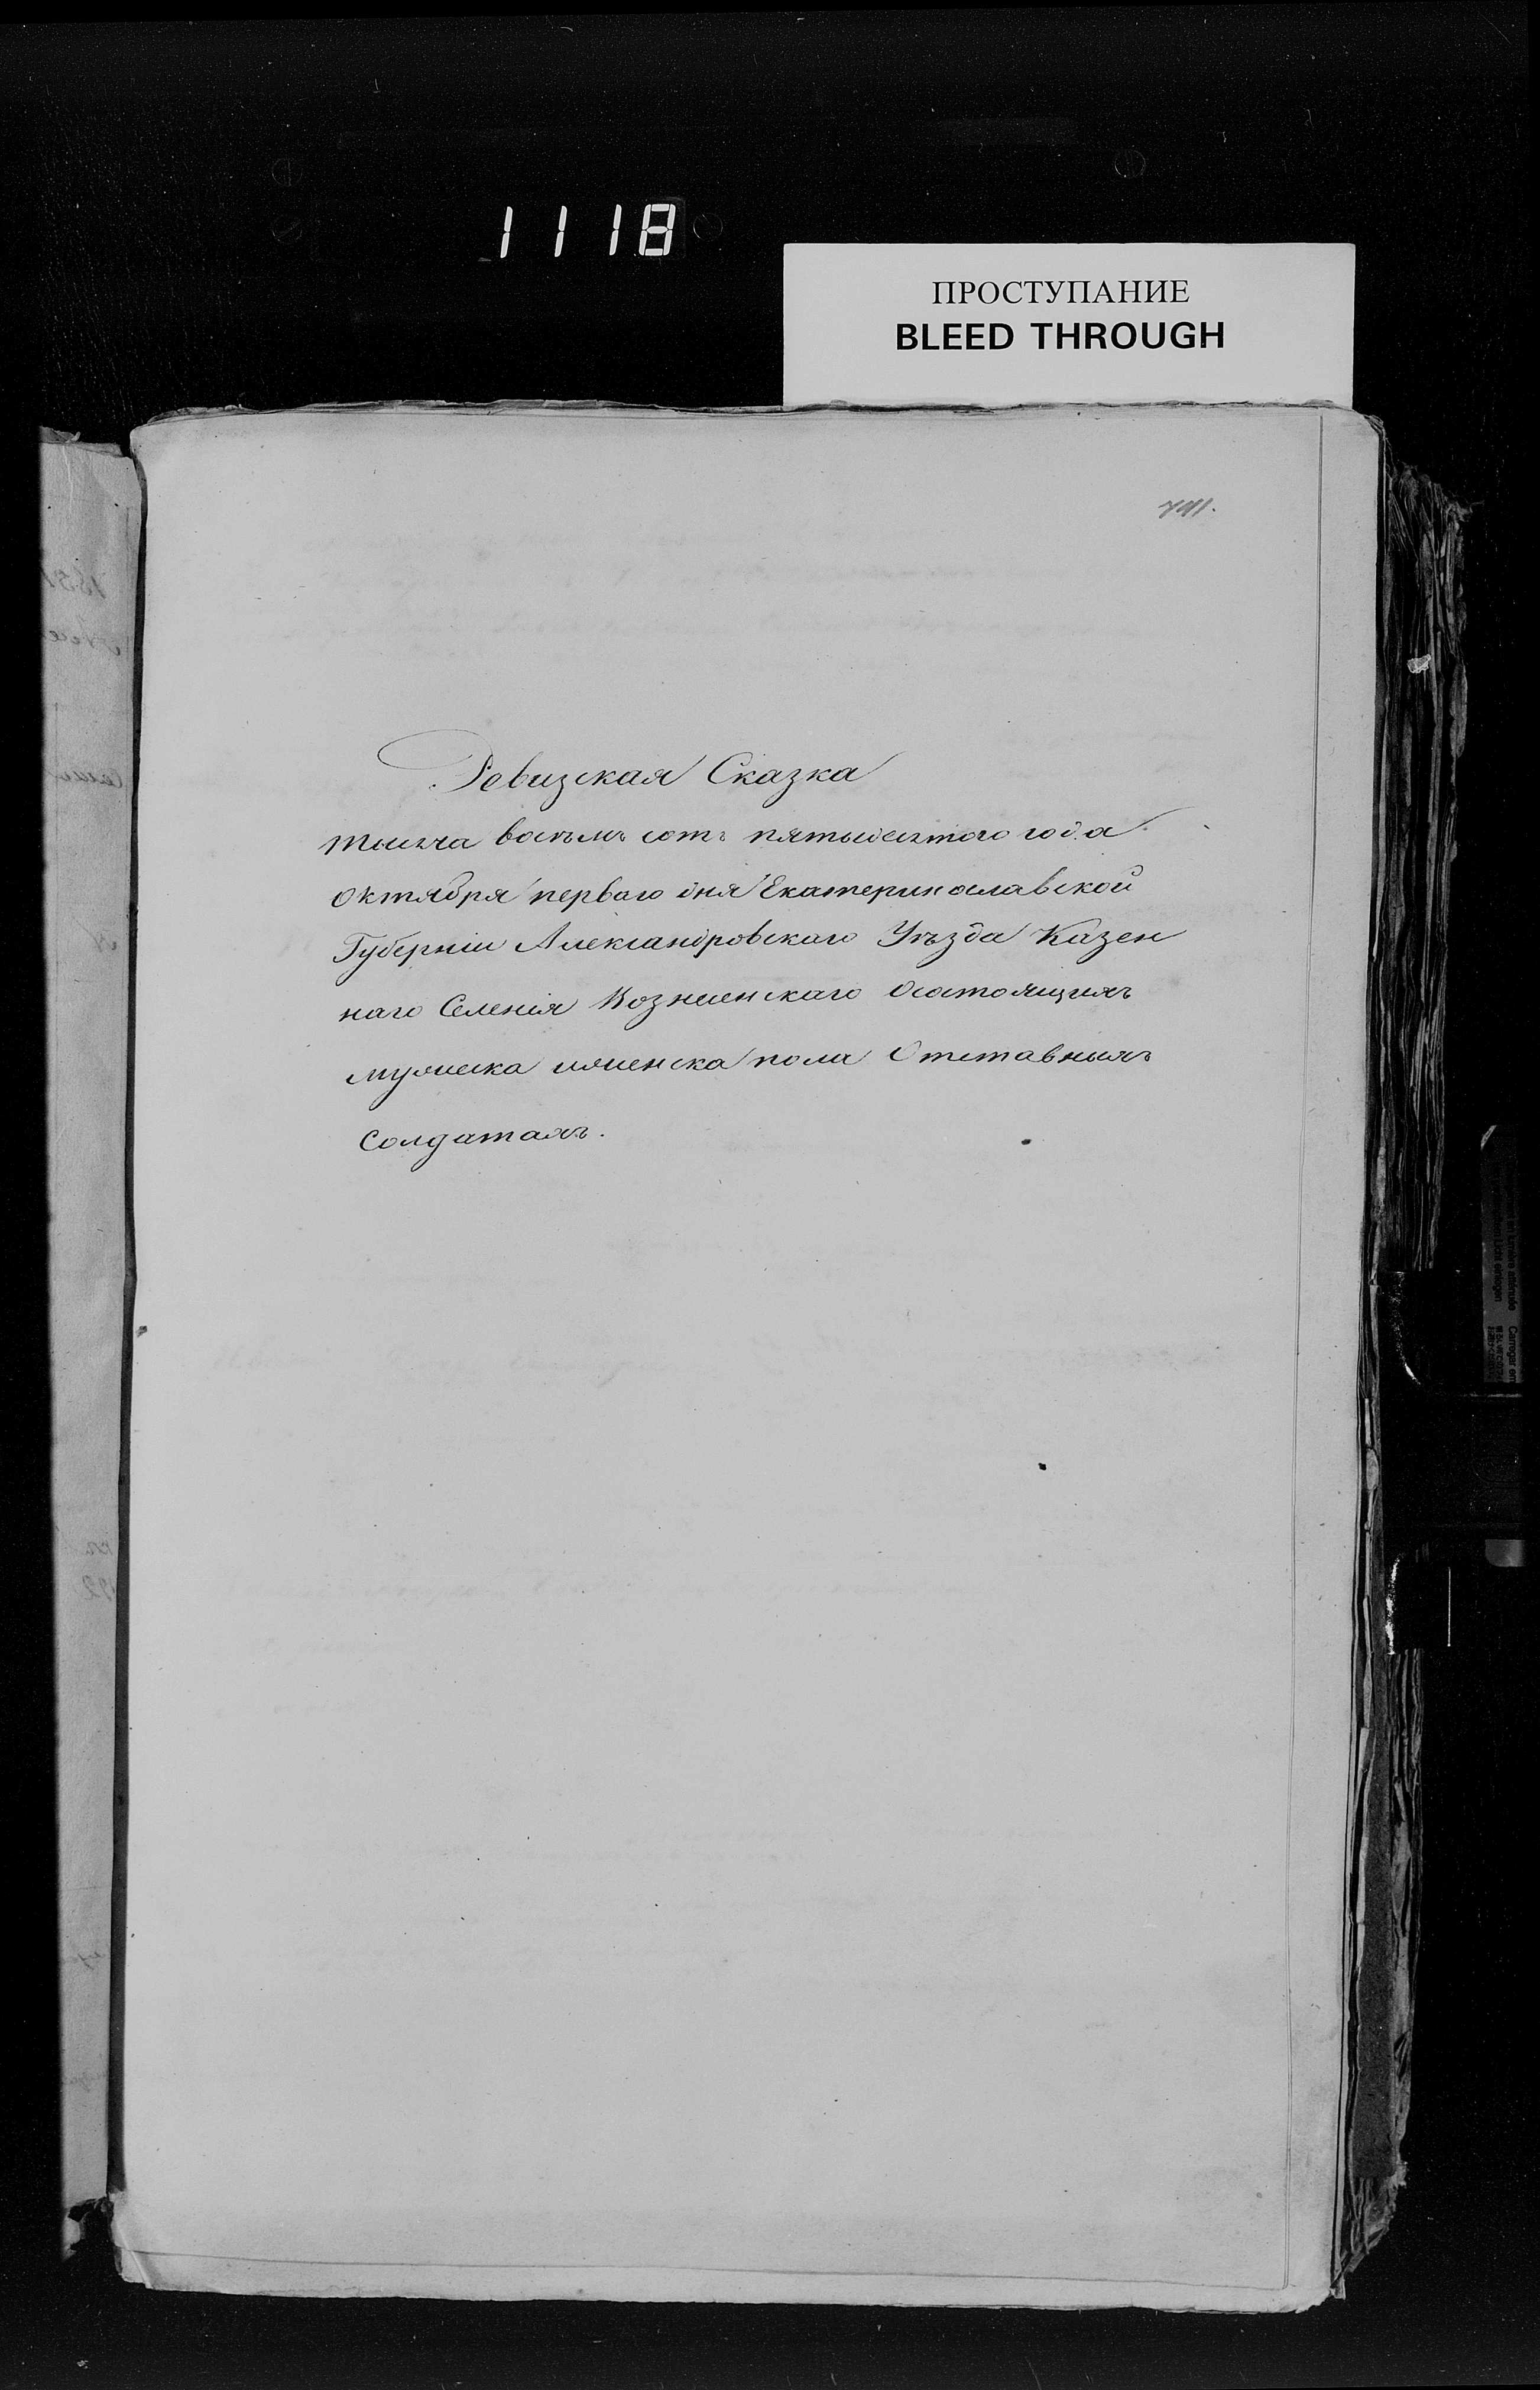 1118
ПРОСТУПАНИЕ
BLEED THROUGH
741.
Ревизская Сказка
тысяча восемь сотъ пятьдесятого года
Октября перваго дня Екатеринославской
Губерніи Александровскаго Уѣзда Казен
наго Селенія Вознесенскаго Осостоящихъ
мужеска иженска пола Отставныхъ
Солдатахъ.